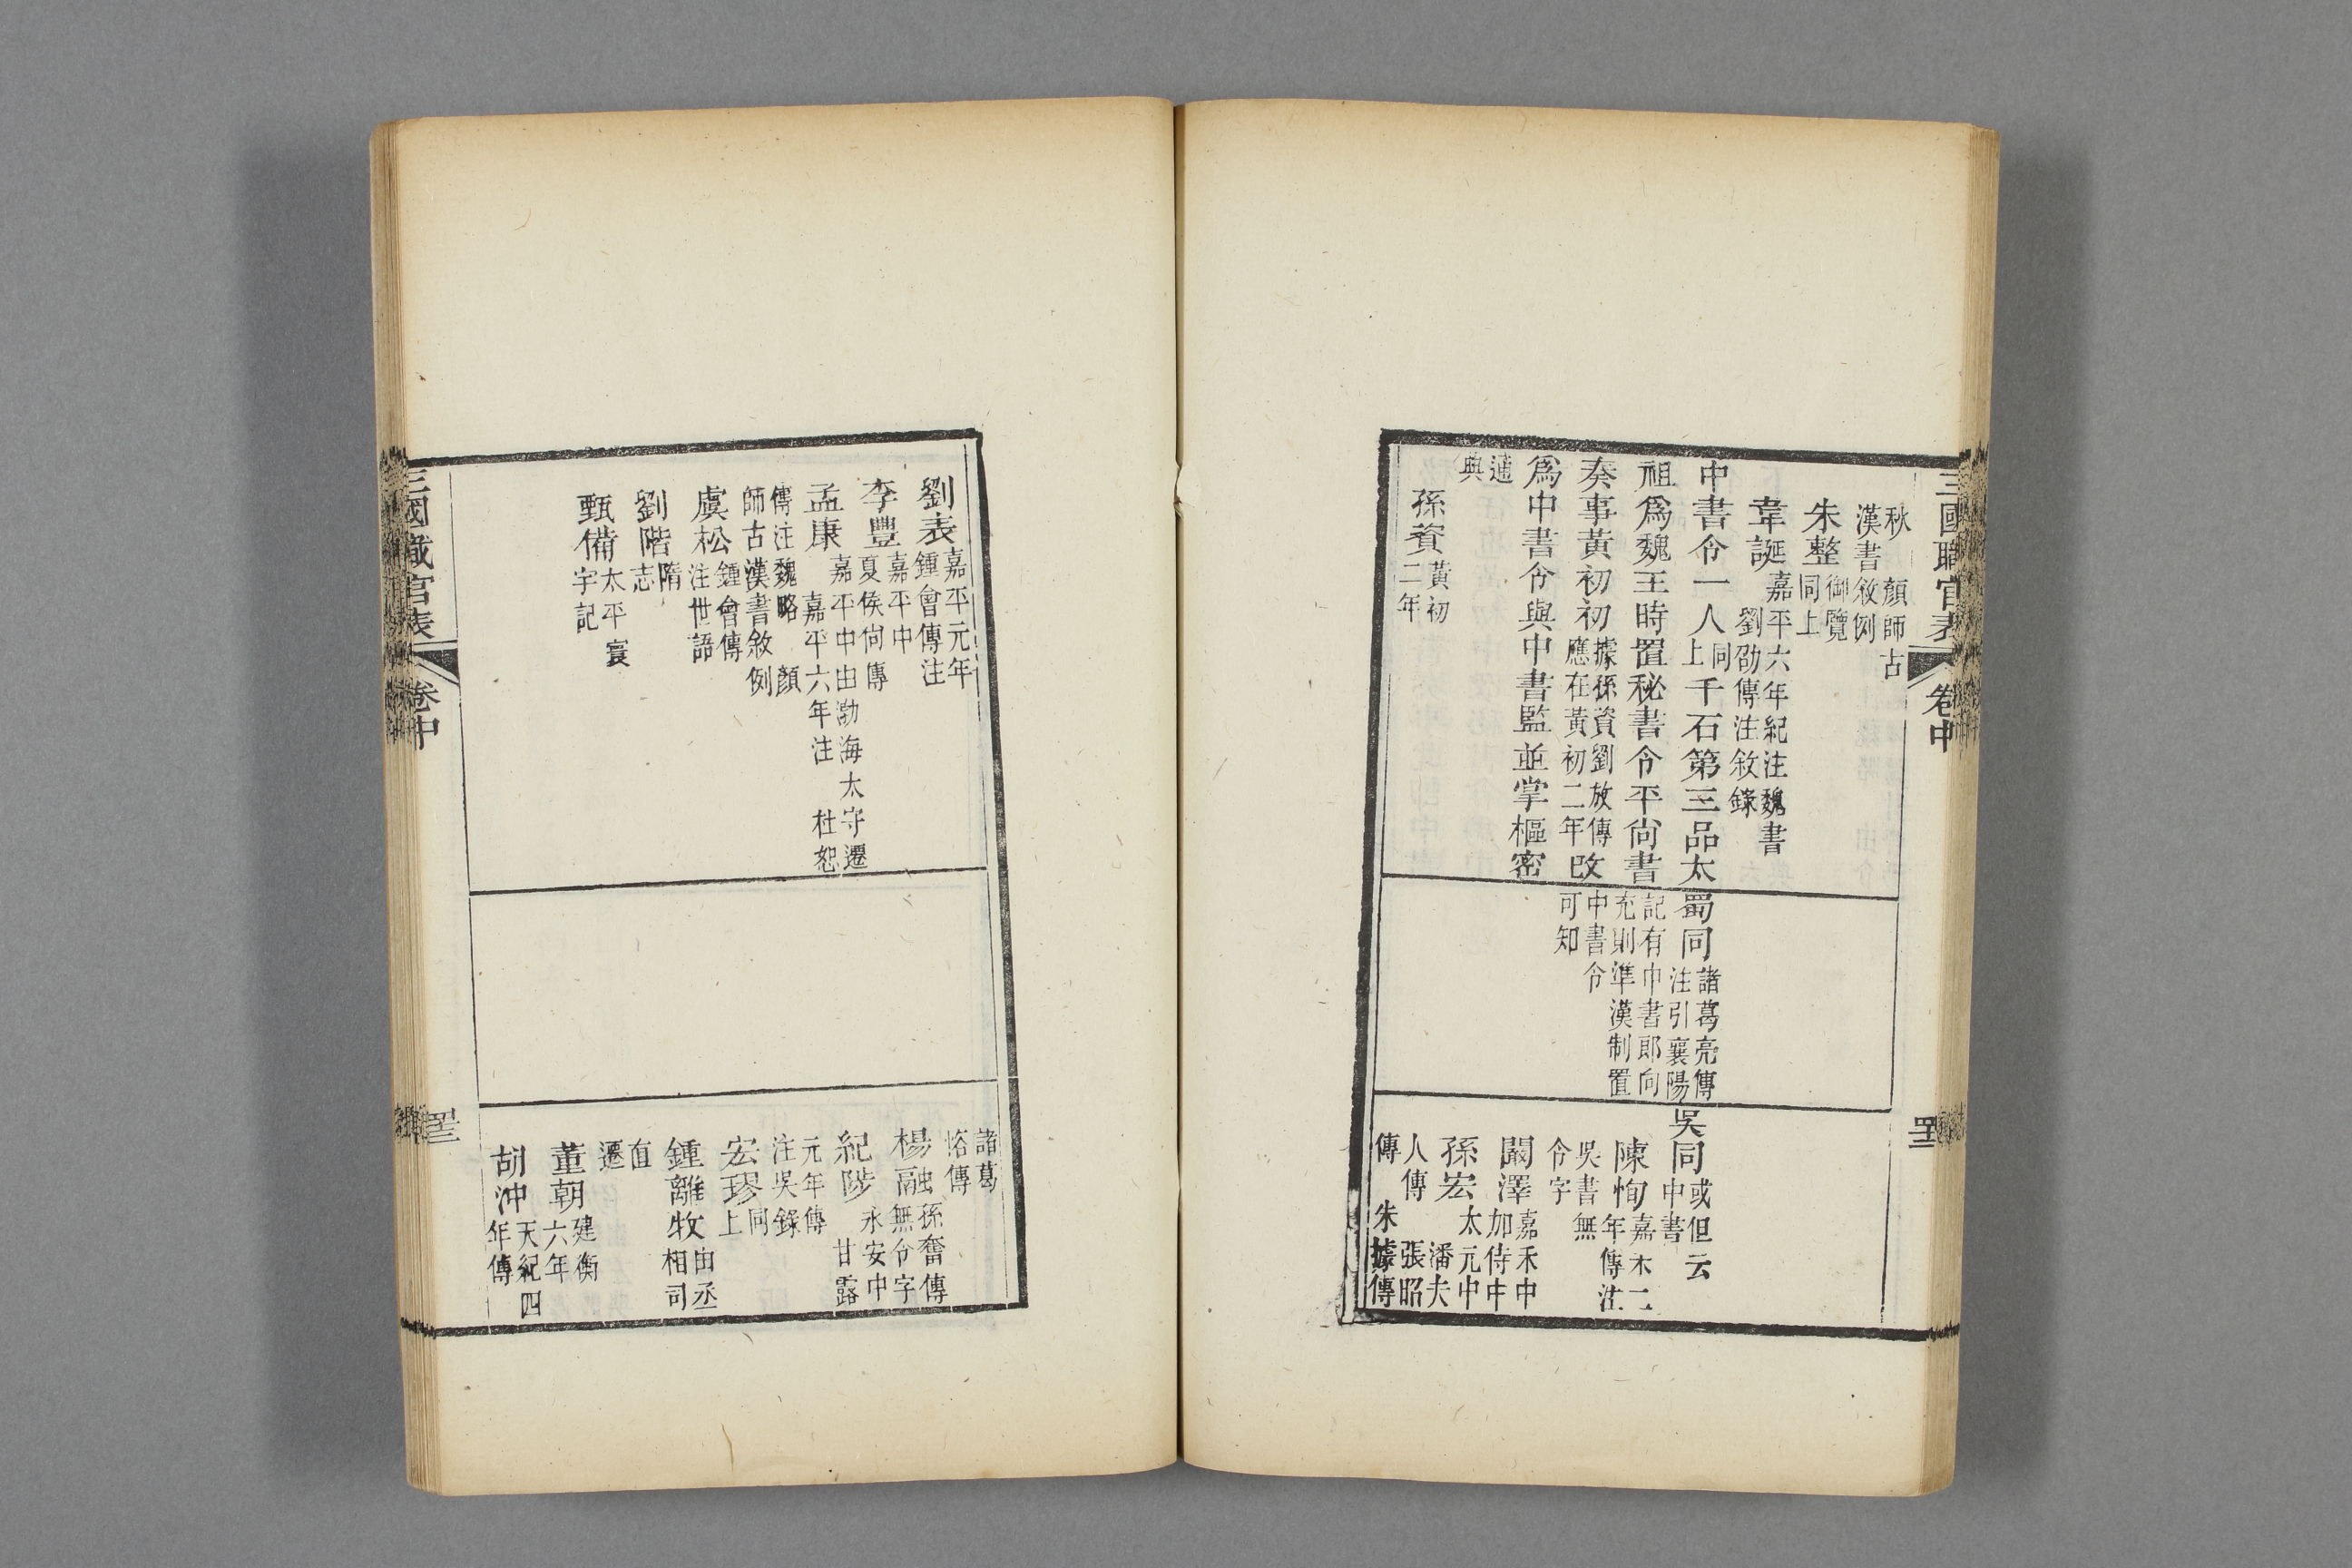 三國職官表
卷中
秋　顏師古
漢書敘例
朱整御覽
同上
韋誕嘉平六年紀注魏書
劉劭傳注敘錄
中書令一人同
上千石第三品太
祖爲魏王時置秘書令平尙書
奏事黃初初據孫資劉放傳
應在黃初二年改
爲中書令與中書監並掌樞密
通
典
孫資黃初
二年
蜀同諸葛亮傳
注引襄陽
記有中書郎向
充則準漢制置
中書令
可知
吳同或但云
中書
陳恂嘉禾二
年傳注
吳書無
令字
闞澤嘉禾中
加侍中
孫宏太元中
潘夫
人傳　張昭
傳　朱據傳
劉表嘉平元年
鍾會傳注
李豐嘉平中
夏侯尙傳
孟康嘉平中由渤海太守遷
嘉平六年注　杜恕
傳注魏略　顏
師古漢書敘例
虞松鍾會傳
注世語
劉階隋
志
甄備太平寰
宇記
諸葛
恪傳
楊融孫奮傳
無令字
紀陟永安中
甘露
元年傳
注吳錄
宏璆同
上
鍾離牧由丞
相司
直
遷
董朝建衡
六年
胡沖天紀四
年傳
三國職官表
卷中